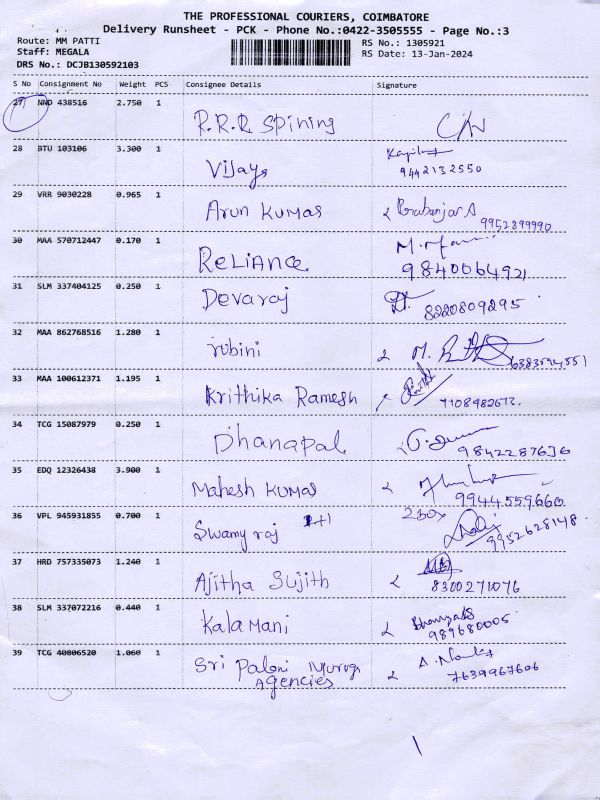 THE PROFESSIONAL COURIERS, COIMBATORE
Delivery Runsheet - PCK - Phone No.:0422-3505555 - Page No.:3
Route: MM PATTI
Staff: MEGALA
DRS No.: DCJB130592103
RS No.: 1305921
RS Date: 13-Jan-2024
S No Consignment No Weight PCS Consignee Details Signature
27 NND 438516 2.750 1 R.R.R Spining
28 BTU 103106 3.300 1 Vijay
9442132550
29 VRR 9030228 0.965 1 Arun Kumar
9952899990
30 MAA 570712447 0.170 1 Reliance
9840064921
31 SLM 337404125 0.250 1 Devaraj 8220809295
32 MAA 862768516 1.280 1 rubini
6383594551
33 MAA 100612371 1.195 1 Krithika Ramesh
34 TCG 15087979 0.250 1 Dhanapal
9842287636
35 EDQ 12326438 3.900 1 Mahesh Kumar
9944559660
36 VPL 945931855 0.700 1 Swamy raj
9952628148
37 HRD 757335073 1.240 1 Ajitha Sujith
8300271076
38 SLM 337072216 0.440 1 Kalamani
989680005
39 TCG 40806520 1.060 1 Sri Palani Muruga
Agencies
7639967606